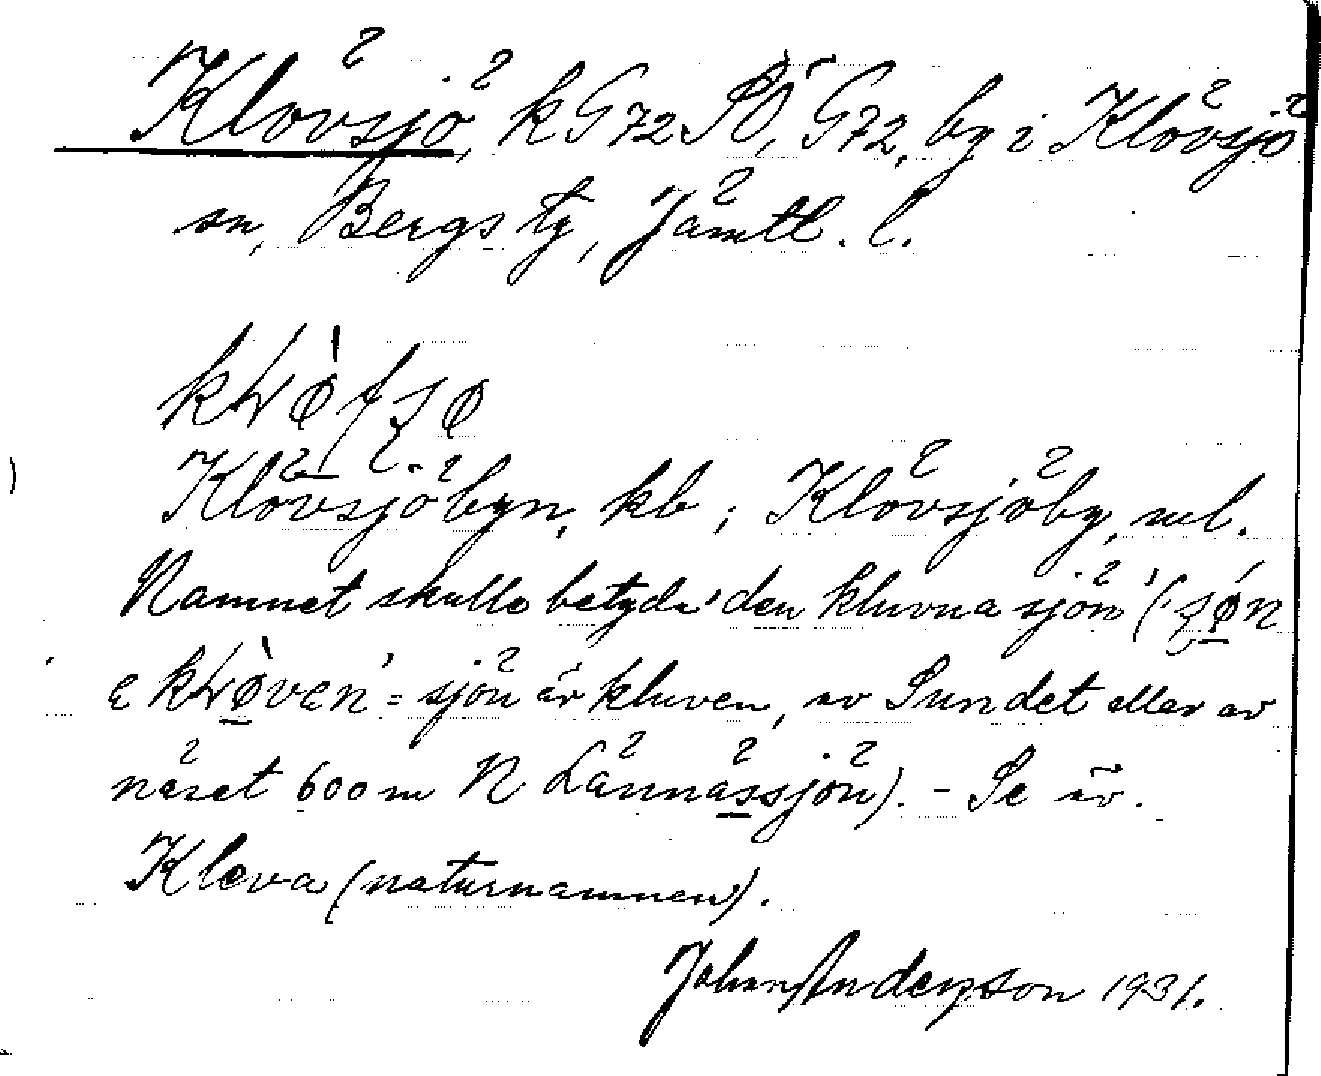 Klövsjö, k G72 SÖ, G72, by i Klövsjö
sn, Bergs tg, Jämtl. l.
Klövsjöbyn, kb ; Klövsjöby, ml.
Namnet skulle betyda 'den kluvna sjön' (
= sjön är kluven, av Sundet eller av
näset 600 m N Lännässjön). - Se äv.
Kleva (naturnamnen).
Johan Anderzson 1931.